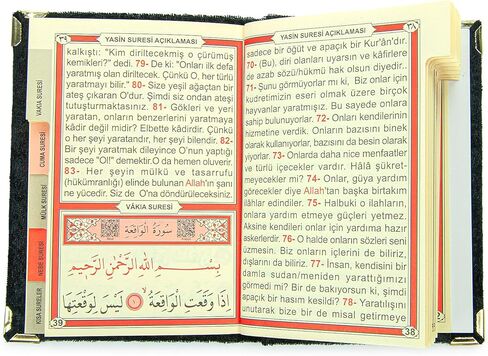 YASİN SURESİ AÇIKLAMASI ٣٨
sadece bir öğüt ve apaçık bir Kur'ân'dır.
70- (Bu), diri olanları uyarsın ve kâfirlere
de azab sözü/hükmü hak olsun diyedir..
71- Şunu görmüyorlar mı ki, Biz onlar için
kudretimizin eseri olmak üzere birçok
hayvanlar yaratmışız. Bu sayede onlara
sahip bulunuyorlar. 72- Onları kendilerinin
hizmetine verdik. Onların bazısını binek
olarak kullanıyorlar, bazısını da besin olarak
yiyorlar. 73- Onlarda daha nice menfaatler
ve türlü içecekler vardır. Hâlâ şükret-
meyecekler mi? 74- Onlar, güya yardım
görecekler diye Allah'tan başka birtakım
ilâhlar edindiler. 75- Halbuki o ilahların,
onlara yardım etmeye güçleri yetmez.
Aksine kendileri onlar için yardıma hazır
askerlerdir. 76- O halde onların sözleri seni
üzmesin. Biz onların içlerini de biliriz,
dışlarını da biliriz. 77- İnsan, kendisini bir
damla sudan/meniden yarattığımızı
görmedi mi? Bir de bakıyorsun ki, şimdi
apaçık bir hasım kesildi? 78- Yaratılışını
unutarak bize bir de misal getirmeye
38
٣٩ YASİN SURESİ AÇIKLAMASI
kalkıştı: "Kim diriltecekmiş o çürümüş
kemikleri?" dedi. 79- De ki: "Onları ilk defa
yaratmış olan diriltecek. Çünkü O, her türlü
yaratmayı bilir." 80- Size yeşil ağaçtan bir
ateş çıkaran O'dur. Şimdi siz ondan ateşi
tutuşturmaktasınız. 81- Gökleri ve yeri
yaratan, onların benzerlerini yaratmaya
kâdir değil midir? Elbette kâdirdir. Çünkü
o her şeyi yaratandır, her şeyi bilendir. 82-
Bir şeyi yaratmak dileyince O'nun yaptığı
sadece "Ol!" demektir.O da hemen oluverir.
83- Her şeyin mülkü ve tasarrufu
(hükümranlığı) elinde bulunan Allah'ın şanı
ne yücedir. Siz de O'na döndürüleceksiniz.
VÂKIA SURESİ
سُورَةُ الْوَاقِعَةِ
بِسْمِ اللّٰهِ الرَّحْمٰنِ الرَّحِيمِ
اِذَا وَقَعَتِ الْوَاقِعَةُ ۙ ١ لَيْسَ لِوَقْعَتِهَا
39
VAKIA SURESİ
CUMA SURESİ
MÜLK SURESİ
NEBE SURESİ
KISA SURELER